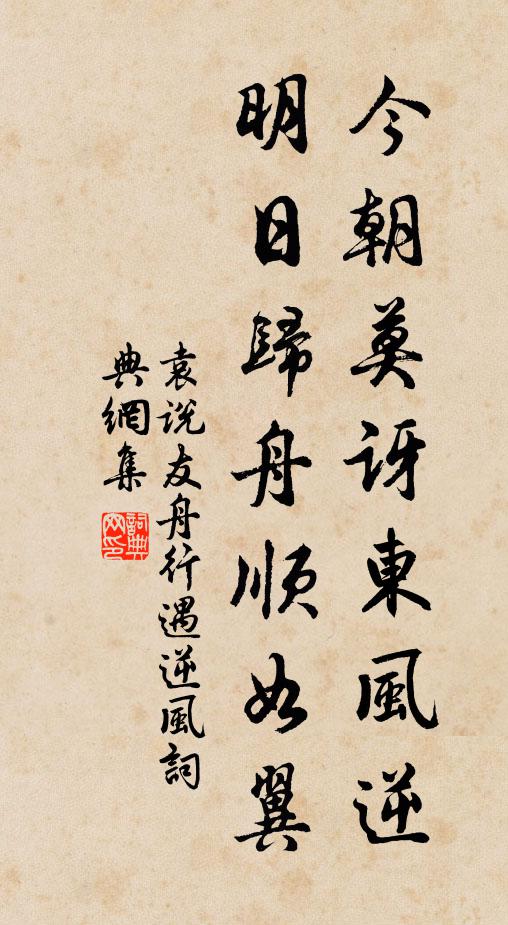 今朝莫訝東風逆
明日歸舟順如翼
袁说友舟行遇逆風詞
典網集
詞典网印